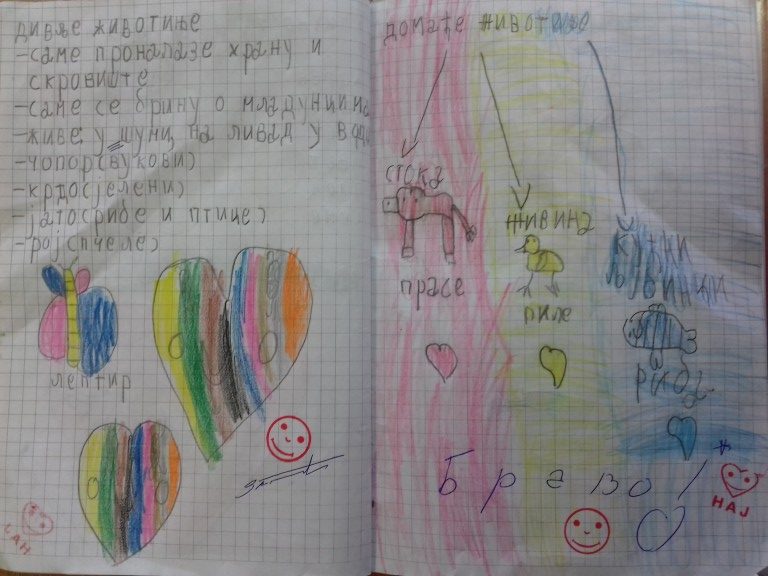 дивље животиње
-саме проналазе храну и
скровиште
-саме се брину о младунцима
-живе у шуми, на ливад у води
-чопор(вукови)
-крдо(јелени)
-јато(рибе и птице)
-рој(пчеле)
лептир
домаће животиње
стока
прасе
живина
пиле
кућни
љубимци
риба
Браво!
НАЈ